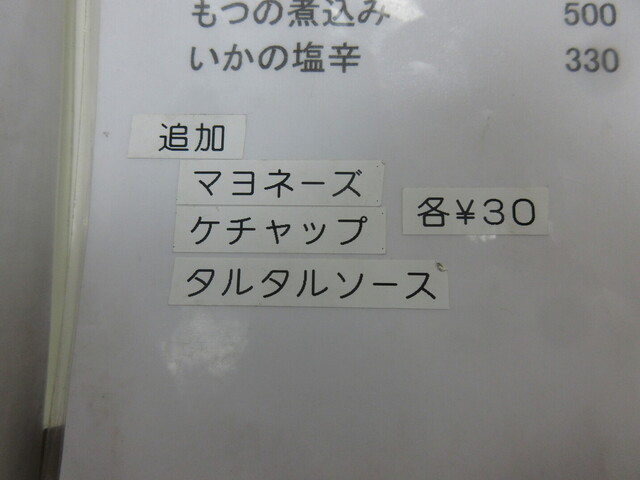 もつの煮込み 500
いかの塩辛 330
追加
マヨネーズ
ケチャップ 各¥30
タルタルソース